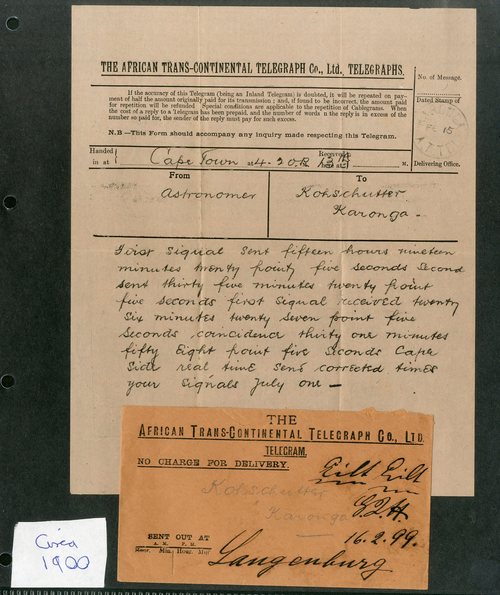 THE AFRICAN TRANS-CONTINENTAL TELEGRAPH Co., Ltd., TELEGRAPHS.
No. of Message.
If the accuracy of this Telegram (being an Inland Telegram) is doubted, it will be repeated on pay-
ment of half the amount originally paid for its transmission; and, if found to be incorrect, the amount paid
for repetition will be refunded. Special conditions are applicable to the repetition of Cablegrams. When
the cost of a reply to a Telegram has been prepaid, and the number of words in the reply is in excess of the
number so paid for, the sender of the reply must pay for such excess.
Dated Stamp of
15
N.B—This Form should accompany any inquiry made respecting this Telegram.
Handed in at Cape Town at 4.20 Received here at M.
Delivering Office.
From To
Astronomer Kohschutter
Karonga -
First Signal Sent fifteen hours nineteen
minutes twenty point five seconds Second
sent thirty five minutes twenty point
five seconds first signal received twenty
six minutes twenty seven point five
seconds coincidence thirty one minutes
fifty Eight point five seconds Cape
side real time send corrected times
your signals July one —
THE
AFRICAN TRANS-CONTINENTAL TELEGRAPH Co., LTD.
TELEGRAM.
NO CHARGE FOR DELIVERY.
Eilt Eilt
Kohschutter
Karonga
16.2.99.
SENT OUT AT
A.M. P.M.
Hour. Min. Hour. Min
Langenburg
Circa
1900